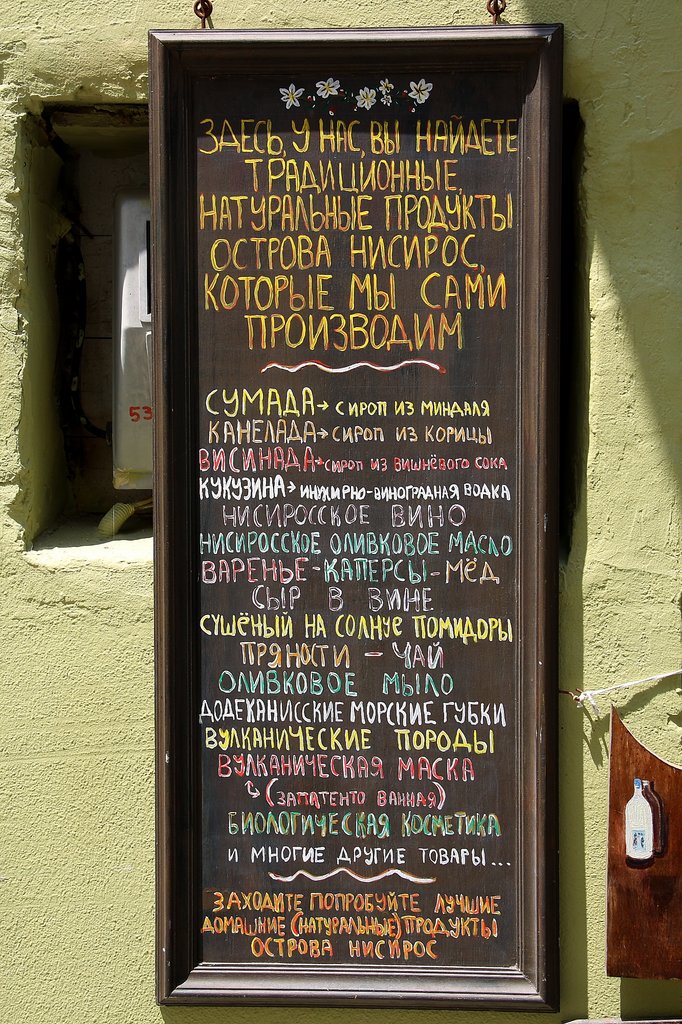 ЗДЕСЬ, У НАС, ВЫ НАЙДЕТЕ
ТРАДИЦИОННЫЕ,
НАТУРАЛЬНЫЕ ПРОДУКТЫ
ОСТРОВА НИСИРОС,
КОТОРЫЕ МЫ САМИ
ПРОИЗВОДИМ
СУМАДА → СИРОП ИЗ МИНДАЛЯ
КАНЕЛАДА → СИРОП ИЗ КОРИЦЫ
ВИСИНАДА → СИРОП ИЗ ВИШНЁВОГО СОКА
КУКУЗИНА → ИНЖИРНО-ВИНОГРАДНАЯ ВОДКА
НИСИРОССКОЕ ВИНО
НИСИРОССКОЕ ОЛИВКОВОЕ МАСЛО
ВАРЕНЬЕ - КАПЕРСЫ - МЁД
СЫР В ВИНЕ
СУШЁНЫЙ НА СОЛНЦЕ ПОМИДОРЫ
ПРЯНОСТИ - ЧАЙ
ОЛИВКОВОЕ МЫЛО
ДОДЕХАНИССКИЕ МОРСКИЕ ГУБКИ
ВУЛКАНИЧЕСКИЕ ПОРОДЫ
ВУЛКАНИЧЕСКАЯ МАСКА
(ЗАПАТЕНТО ВАННАЯ)
БИОЛОГИЧЕСКАЯ КОСМЕТИКА
И МНОГИЕ ДРУГИЕ ТОВАРЫ...
ЗАХОДИТЕ ПОПРОБУЙТЕ ЛУЧШИЕ
ДОМАШНИЕ (НАТУРАЛЬНЫЕ) ПРОДУКТЫ
ОСТРОВА НИСИРОС
53